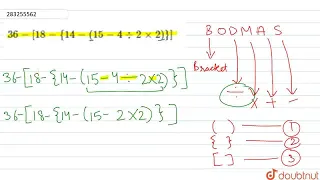 283255562
36 – [18 – {14 – (15 – 4 ÷ 2 × 2)}]
BODMAS
bracket
36-[18-{14-(15-4÷2×2)}]
÷ × + -
36-[18-{14-(15-2×2)}]
( ) — 1
{ } — 2
[ ] — 3
doubtnut